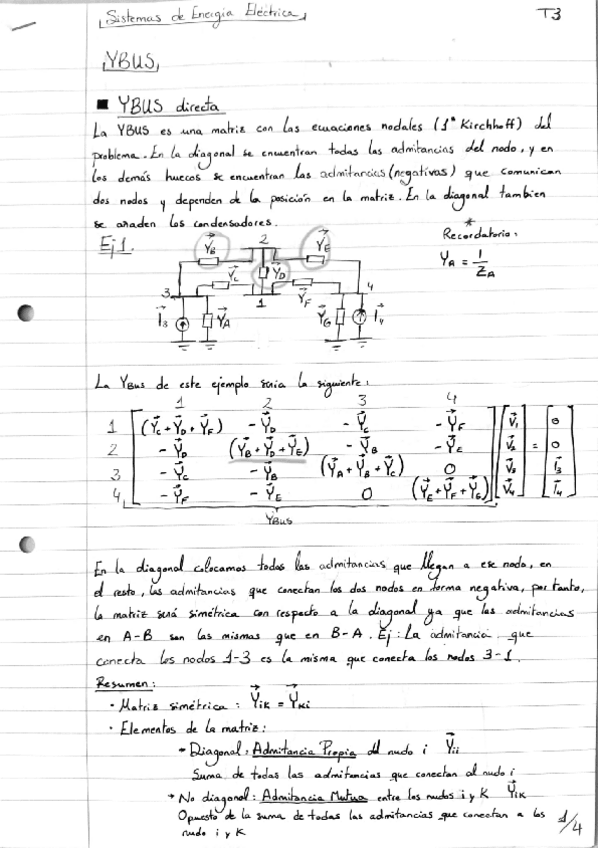 Sistemas de Energía Eléctrica
T3
YBUS
■ YBUS directa
La YBUS es una matriz con las ecuaciones nodales (1ª Kirchhoff) del
problema. En la diagonal se encuentran todas las admitancias del nodo, y en
los demás huecos se encuentran las admitancias (negativas) que comunican
dos nodos y dependen de la posición en la matriz. En la diagonal tambien
se añaden los condensadores.
Ej 1.
* Recordatorio:
Y_A = 1/Z_A
2
Y_B Y_E
Y_C Y_D
3 1 Y_F 4
I_3 Y_A Y_G I_4
La YBUS de este ejemplo sería la siguiente:
1 2 3 4
1 (Y_C + Y_D + Y_F) - Y_D - Y_C - Y_F V_1 0
2 - Y_D (Y_B + Y_D + Y_E) - Y_B - Y_E V_2 = 0
3 - Y_C - Y_B (Y_A + Y_B + Y_C) 0 V_3 I_3
4 - Y_F - Y_E 0 (Y_E + Y_F + Y_G) V_4 I_4
YBUS
En la diagonal colocamos todas las admitancias que llegan a ese nodo, en
el resto, las admitancias que conectan los dos nodos en forma negativa, por tanto,
la matriz será simétrica con respecto a la diagonal ya que las admitancias
en A-B son las mismas que en B-A. Ej: La admitancia que
conecta los nodos 1-3 es la misma que conecta los nodos 3-1.
Resumen:
· Matriz simétrica: Y_iK = Y_Ki
· Elementos de la matriz:
* Diagonal: Admitancia Propia del nudo i Y_ii
Suma de todas las admitancias que conectan al nudo i
* No diagonal: Admitancia Mutua entre los nudos i y K Y_iK
Opuesto de la suma de todas las admitancias que conectan a los
nudo i y K
1/4